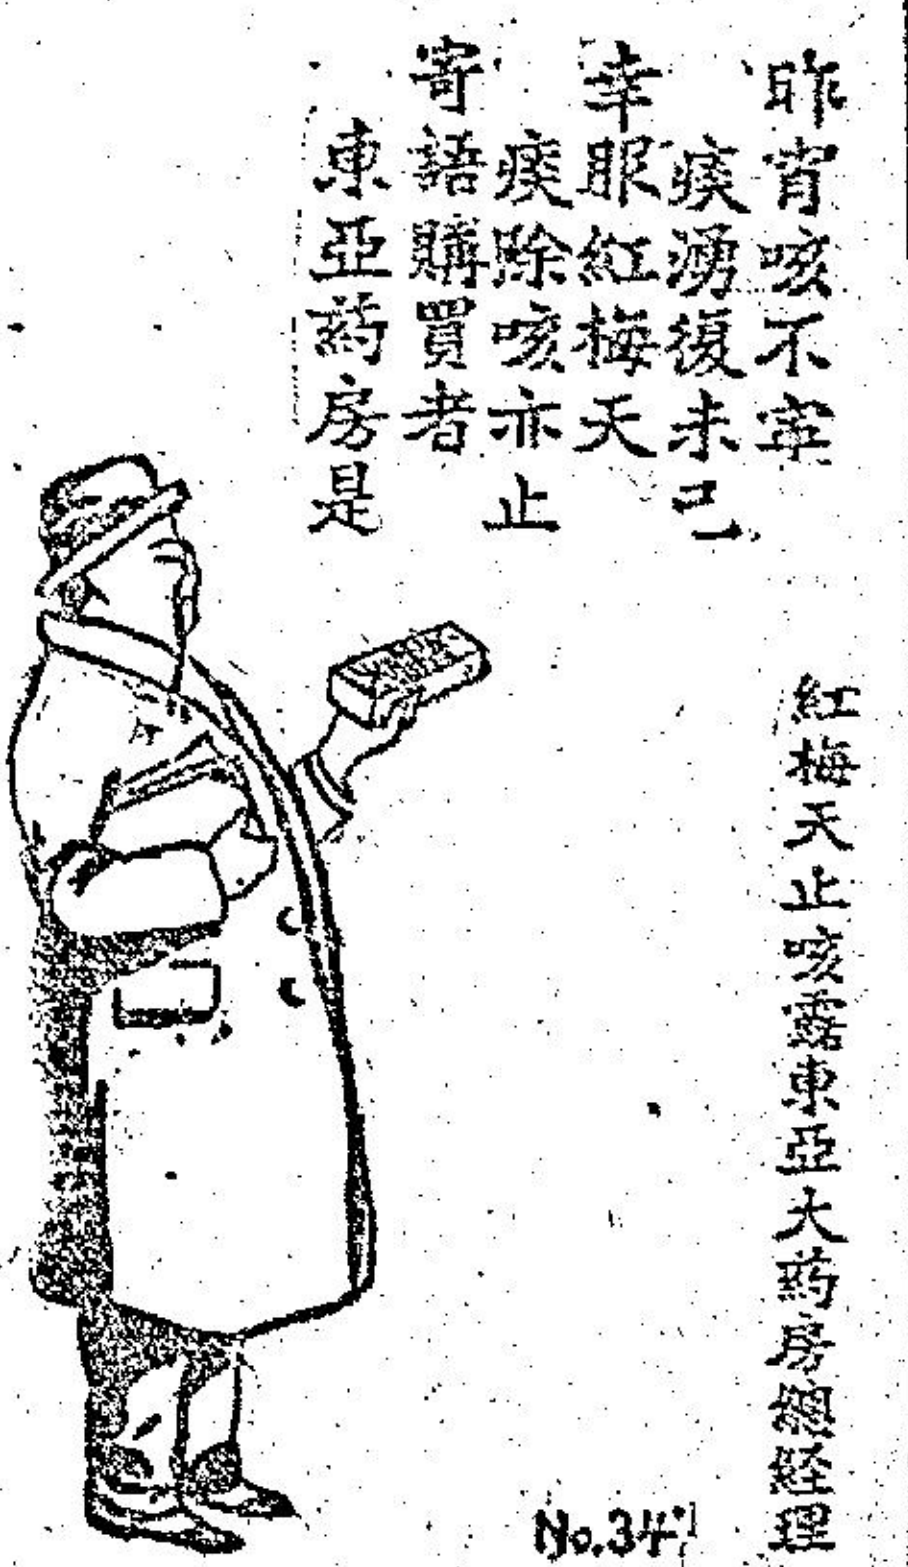 昨宵咳不寧
痰湧復未已
幸服紅梅天
痰除咳亦止
寄語購買者
東亞葯房是
紅梅天止咳露東亞大葯房總經理
No.34